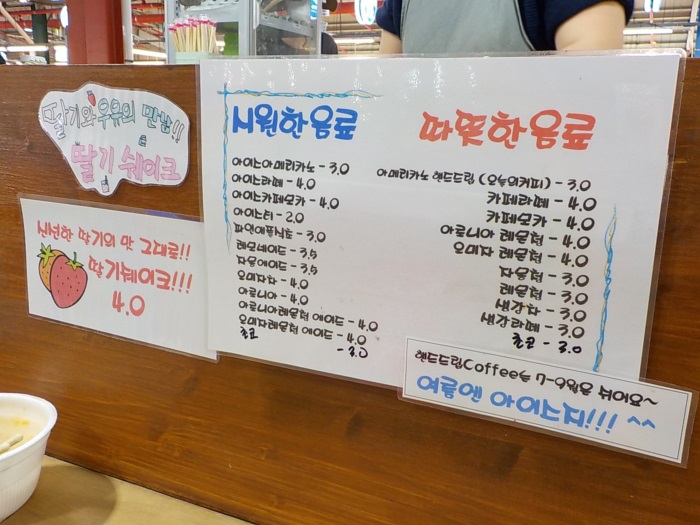 딸기와 우유의 만남!!
딸기 쉐이크
신선한 딸기의 맛 그대로!!
딸기쉐이크!!!
4.0
시원한음료
아이스아메리카노 - 3.0
아이스라떼 - 4.0
아이스카페모카 - 4.0
아이스티 - 2.0
파인애플식초 - 3.0
레모네이드 - 3.5
자몽에이드 - 3.5
오미자 - 4.0
아로니아 - 4.0
아로니아레몬청 에이드 - 4.0
오미자레몬청 에이드 - 4.0
초코 - 3.0
따뜻한음료
아메리카노 핸드드립 (오늘의커피) - 3.0
카페라떼 - 4.0
카페모카 - 4.0
아로니아 레몬청 - 4.0
오미자 레몬청 - 4.0
자몽청 - 3.0
레몬청 - 3.0
생강차 - 3.0
생강라떼 - 3.0
초코 - 3.0
핸드드립Coffee는 7-9월은 쉬어요~
여름엔 아이스죠!!! ^^